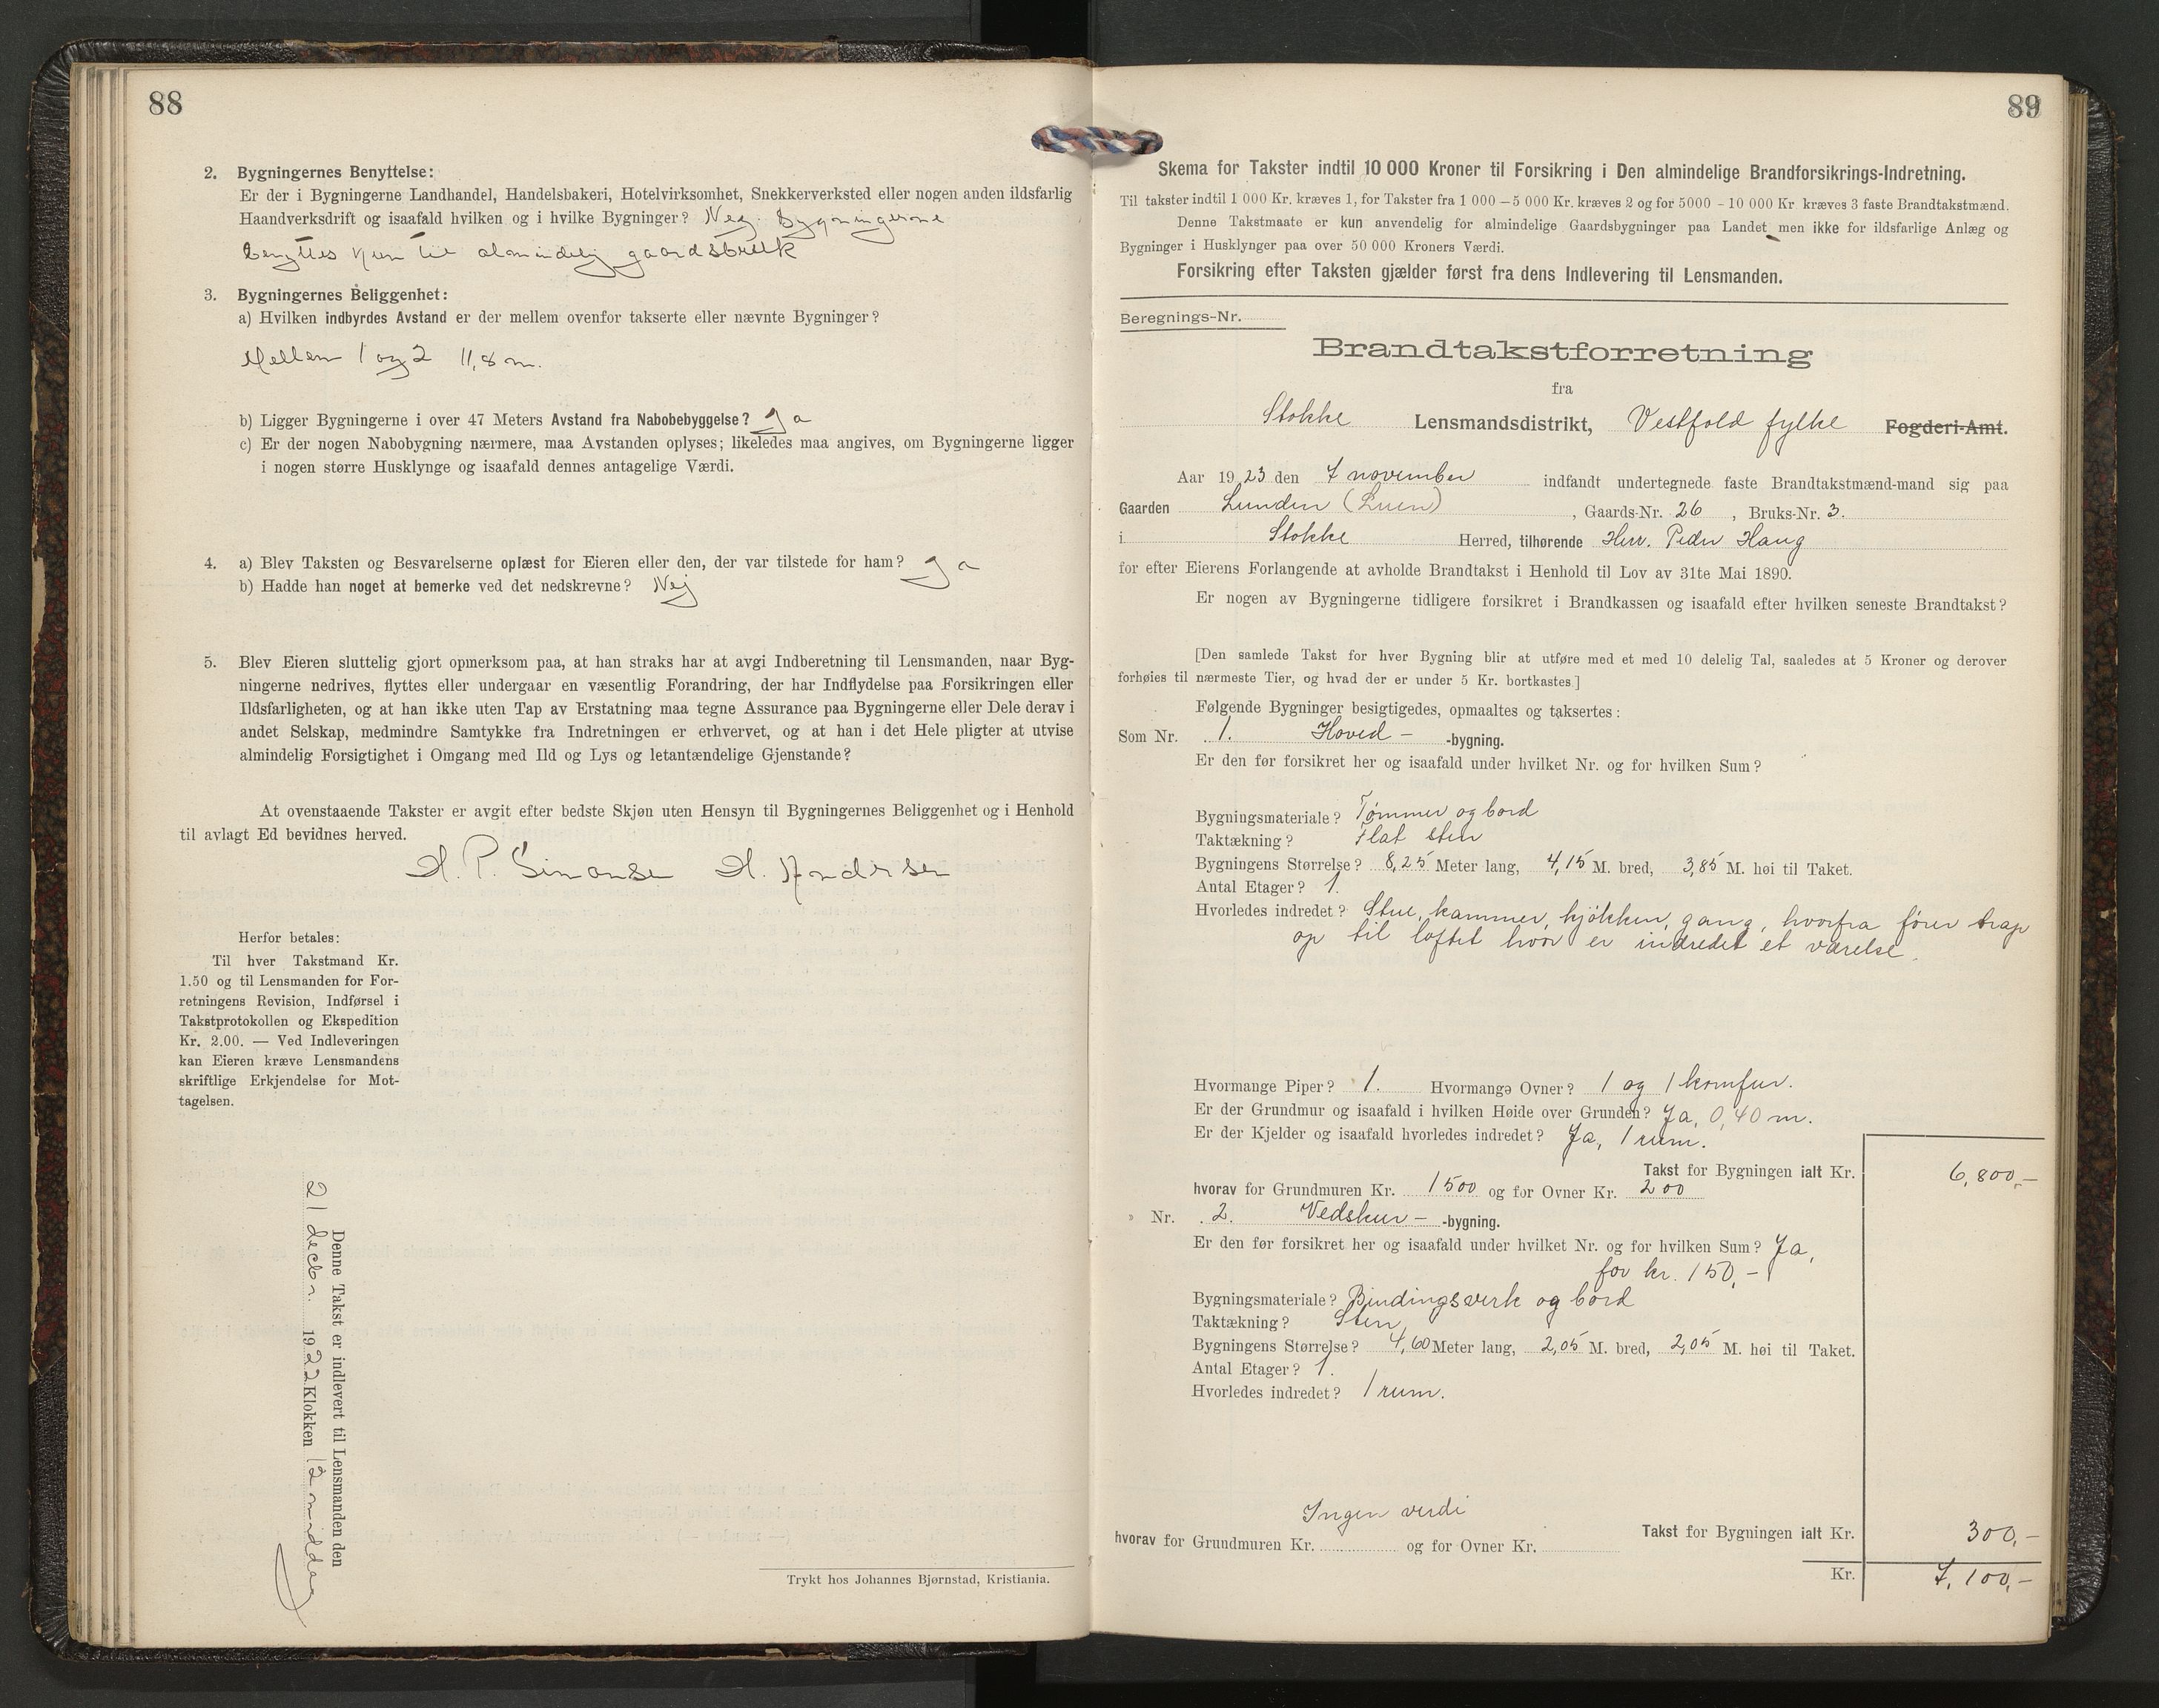 88
2. Bygningernes Benyttelse:
Er der i Bygningerne Landhandel, Handelsbakeri, Hotelvirksomhet, Snekkerverksted eller nogen anden ildsfarlig
Haandverksdrift og isaafald hvilken og i hvilke Bygninger? Nej. Bygningerne
benyttes kun til almindelig gaardsbruk
3. Bygningernes Beliggenhet:
a) Hvilken indbyrdes Avstand er der mellem ovenfor takserte eller nævnte Bygninger?
Mellem 1 og 2 11,8 m.
b) Ligger Bygningerne i over 47 Meters Avstand fra Nabobebyggelse? Ja
c) Er der nogen Nabobygning nærmere, maa Avstanden oplyses; likeledes maa angives, om Bygningerne ligger
i nogen større Husklynge og isaafald dennes antagelige Værdi.
4. a) Blev Taksten og Besvarelserne oplæst for Eieren eller den, der var tilstede for ham? Ja
b) Hadde han noget at bemerke ved det nedskrevne? Nej
5. Blev Eieren sluttelig gjort opmerksom paa, at han straks har at avgi Indberetning til Lensmanden, naar Byg-
ningerne nedrives, flyttes eller undergaar en væsentlig Forandring, der har Indflydelse paa Forsikringen eller
Ildsfarligheten, og at han ikke uten Tap av Erstatning maa tegne Assurance paa Bygningerne eller Dele derav i
andet Selskap, medmindre Samtykke fra Indretningen er erhvervet, og at han i det Hele pligter at utvise
almindelig Forsigtighet i Omgang med Ild og Lys og letantændelige Gjenstande?
At ovenstaaende Takster er avgit efter bedste Skjøn uten Hensyn til Bygningernes Beliggenhet og i Henhold
til avlagt Ed bevidnes herved.
H. P. Simonsen H. Andersen
Herfor betales:
Til hver Takstmand Kr.
1.50 og til Lensmanden for For-
retningens Revision, Indførsel i
Takstprotokollen og Ekspedition
Kr. 2.00. — Ved Indleveringen
kan Eieren kræve Lensmandens
skriftlige Erkjendelse for Mot-
tagelsen.
Denne Takst er indlevert til Lensmanden den
21 decbr. 1922 Klokken 12 middag
Trykt hos Johannes Bjørnstad, Kristiania.
89
Skema for Takster indtil 10 000 Kroner til Forsikring i Den almindelige Brandforsikrings-Indretning.
Til takster indtil 1 000 Kr. kræves 1, for Takster fra 1 000 – 5 000 Kr. kræves 2 og for 5000 - 10 000 Kr kræves 3 faste Brandtakstmænd.
Denne Takstmaate er kun anvendelig for almindelige Gaardsbygninger paa Landet men ikke for ildsfarlige Anlæg og
Bygninger i Husklynger paa over 50 000 Kroners Værdi.
Forsikring efter Taksten gjælder først fra dens Indlevering til Lensmanden.
Beregnings-Nr.
Brandtakstforretning
fra
Stokke Lensmandsdistrikt, Vestfold fylke Fogderi-Amt.
Aar 1923 den 7 november indfandt undertegnede faste Brandtakstmænd-mand sig paa
Gaarden Lunden (Luen), Gaards-Nr. 26, Bruks-Nr. 3.
i Stokke Herred, tilhørende Herr. Peder Haug
for efter Eierens Forlangende at avholde Brandtakst i Henhold til Lov av 31te Mai 1890.
Er nogen av Bygningerne tidligere forsikret i Brandkassen og isaafald efter hvilken seneste Brandtakst?
[Den samlede Takst for hver Bygning blir at utføre med et med 10 delelig Tal, saaledes at 5 Kroner og derover
forhøies til nærmeste Tier, og hvad der er under 5 Kr. bortkastes]
Følgende Bygninger besigtigedes, opmaaltes og taksertes:
Som Nr. 1. Hoved- -bygning.
Er den før forsikret her og isaafald under hvilket Nr. og for hvilken Sum?
Bygningsmateriale? Tømmer og bord
Taktækning? Flat sten
Bygningens Størrelse? 8,25 Meter lang, 4,15 M. bred, 3,85 M. høi til Taket.
Antal Etager? 1.
Hvorledes indredet? Stue, kammer, kjøkken, gang, hvorfra fører trap
op til loftet hvor er indredet et værelse.
Hvormange Piper? 1. Hvormange Ovner? 1 og 1 komfur.
Er der Grundmur og isaafald i hvilken Høide over Grunden? Ja, 0,40 m.
Er der Kjelder og isaafald hvorledes indredet? Ja, 1 rum.
Takst for Bygningen ialt Kr. 6,800,-
hvorav for Grundmuren Kr. 1500 og for Ovner Kr. 200
» Nr. 2. Vedskur- -bygning.
Er den før forsikret her og isaafald under hvilket Nr. og for hvilken Sum? Ja,
for kr. 150,-
Bygningsmateriale? Bindingsverk og bord
Taktækning? Sten
Bygningens Størrelse? 4,60 Meter lang, 2,05 M. bred, 2,05 M. høi til Taket.
Antal Etager? 1.
Hvorledes indredet? 1 rum.
Ingen verdi
Takst for Bygningen ialt Kr. 300,-
hvorav for Grundmuren Kr. og for Ovner Kr.
Kr. 7,100,-